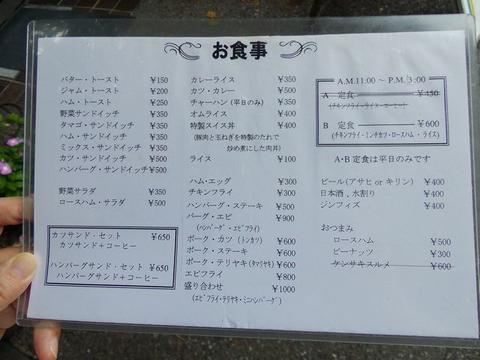 お食事
バター・トースト ¥150
ジャム・トースト ¥200
ハム・トースト ¥250
野菜サンドイッチ ¥350
タマゴ・サンドイッチ ¥350
ハム・サンドイッチ ¥350
ミックス・サンドイッチ ¥350
カツ・サンドイッチ ¥500
ハンバーグ・サンドイッチ ¥500
野菜サラダ ¥350
ロースハム・サラダ ¥500
カツサンド・セット ¥650
カツサンド+コーヒー
ハンバーグサンド・セット ¥650
ハンバーグサンド+コーヒー
カレーライス ¥350
カツ・カレー ¥500
チャーハン(平日のみ) ¥350
オムライス ¥400
特製スイス丼 ¥400
(豚肉と玉ねぎを特製のたれで
炒め煮にした肉丼)
ライス ¥100
ハム・エッグ ¥300
チキンフライ ¥300
ハンバーグ・ステーキ ¥500
バーグ・エビ ¥900
(ハンバーグ・エビフライ)
ポーク・カツ(トンカツ) ¥600
ポーク・ステーキ ¥600
ポーク・テリヤキ(タマリヤキ) ¥600
エビフライ ¥800
盛り合わせ ¥1000
(エビフライ・テリヤキ・ミニハンバーグ)
A.M.11:00 ～ P.M.3:00
A 定食 ¥450
B 定食 ¥600
(チキンフライ・ミンチカツ・ロースハム・ライス)
A・B 定食は平日のみです
ビール(アサヒ or キリン) ¥400
日本酒、水割り ¥400
ジンフィズ ¥400
おつまみ
ロースハム ¥500
ピーナッツ ¥300
ケンサキスルメ ¥600